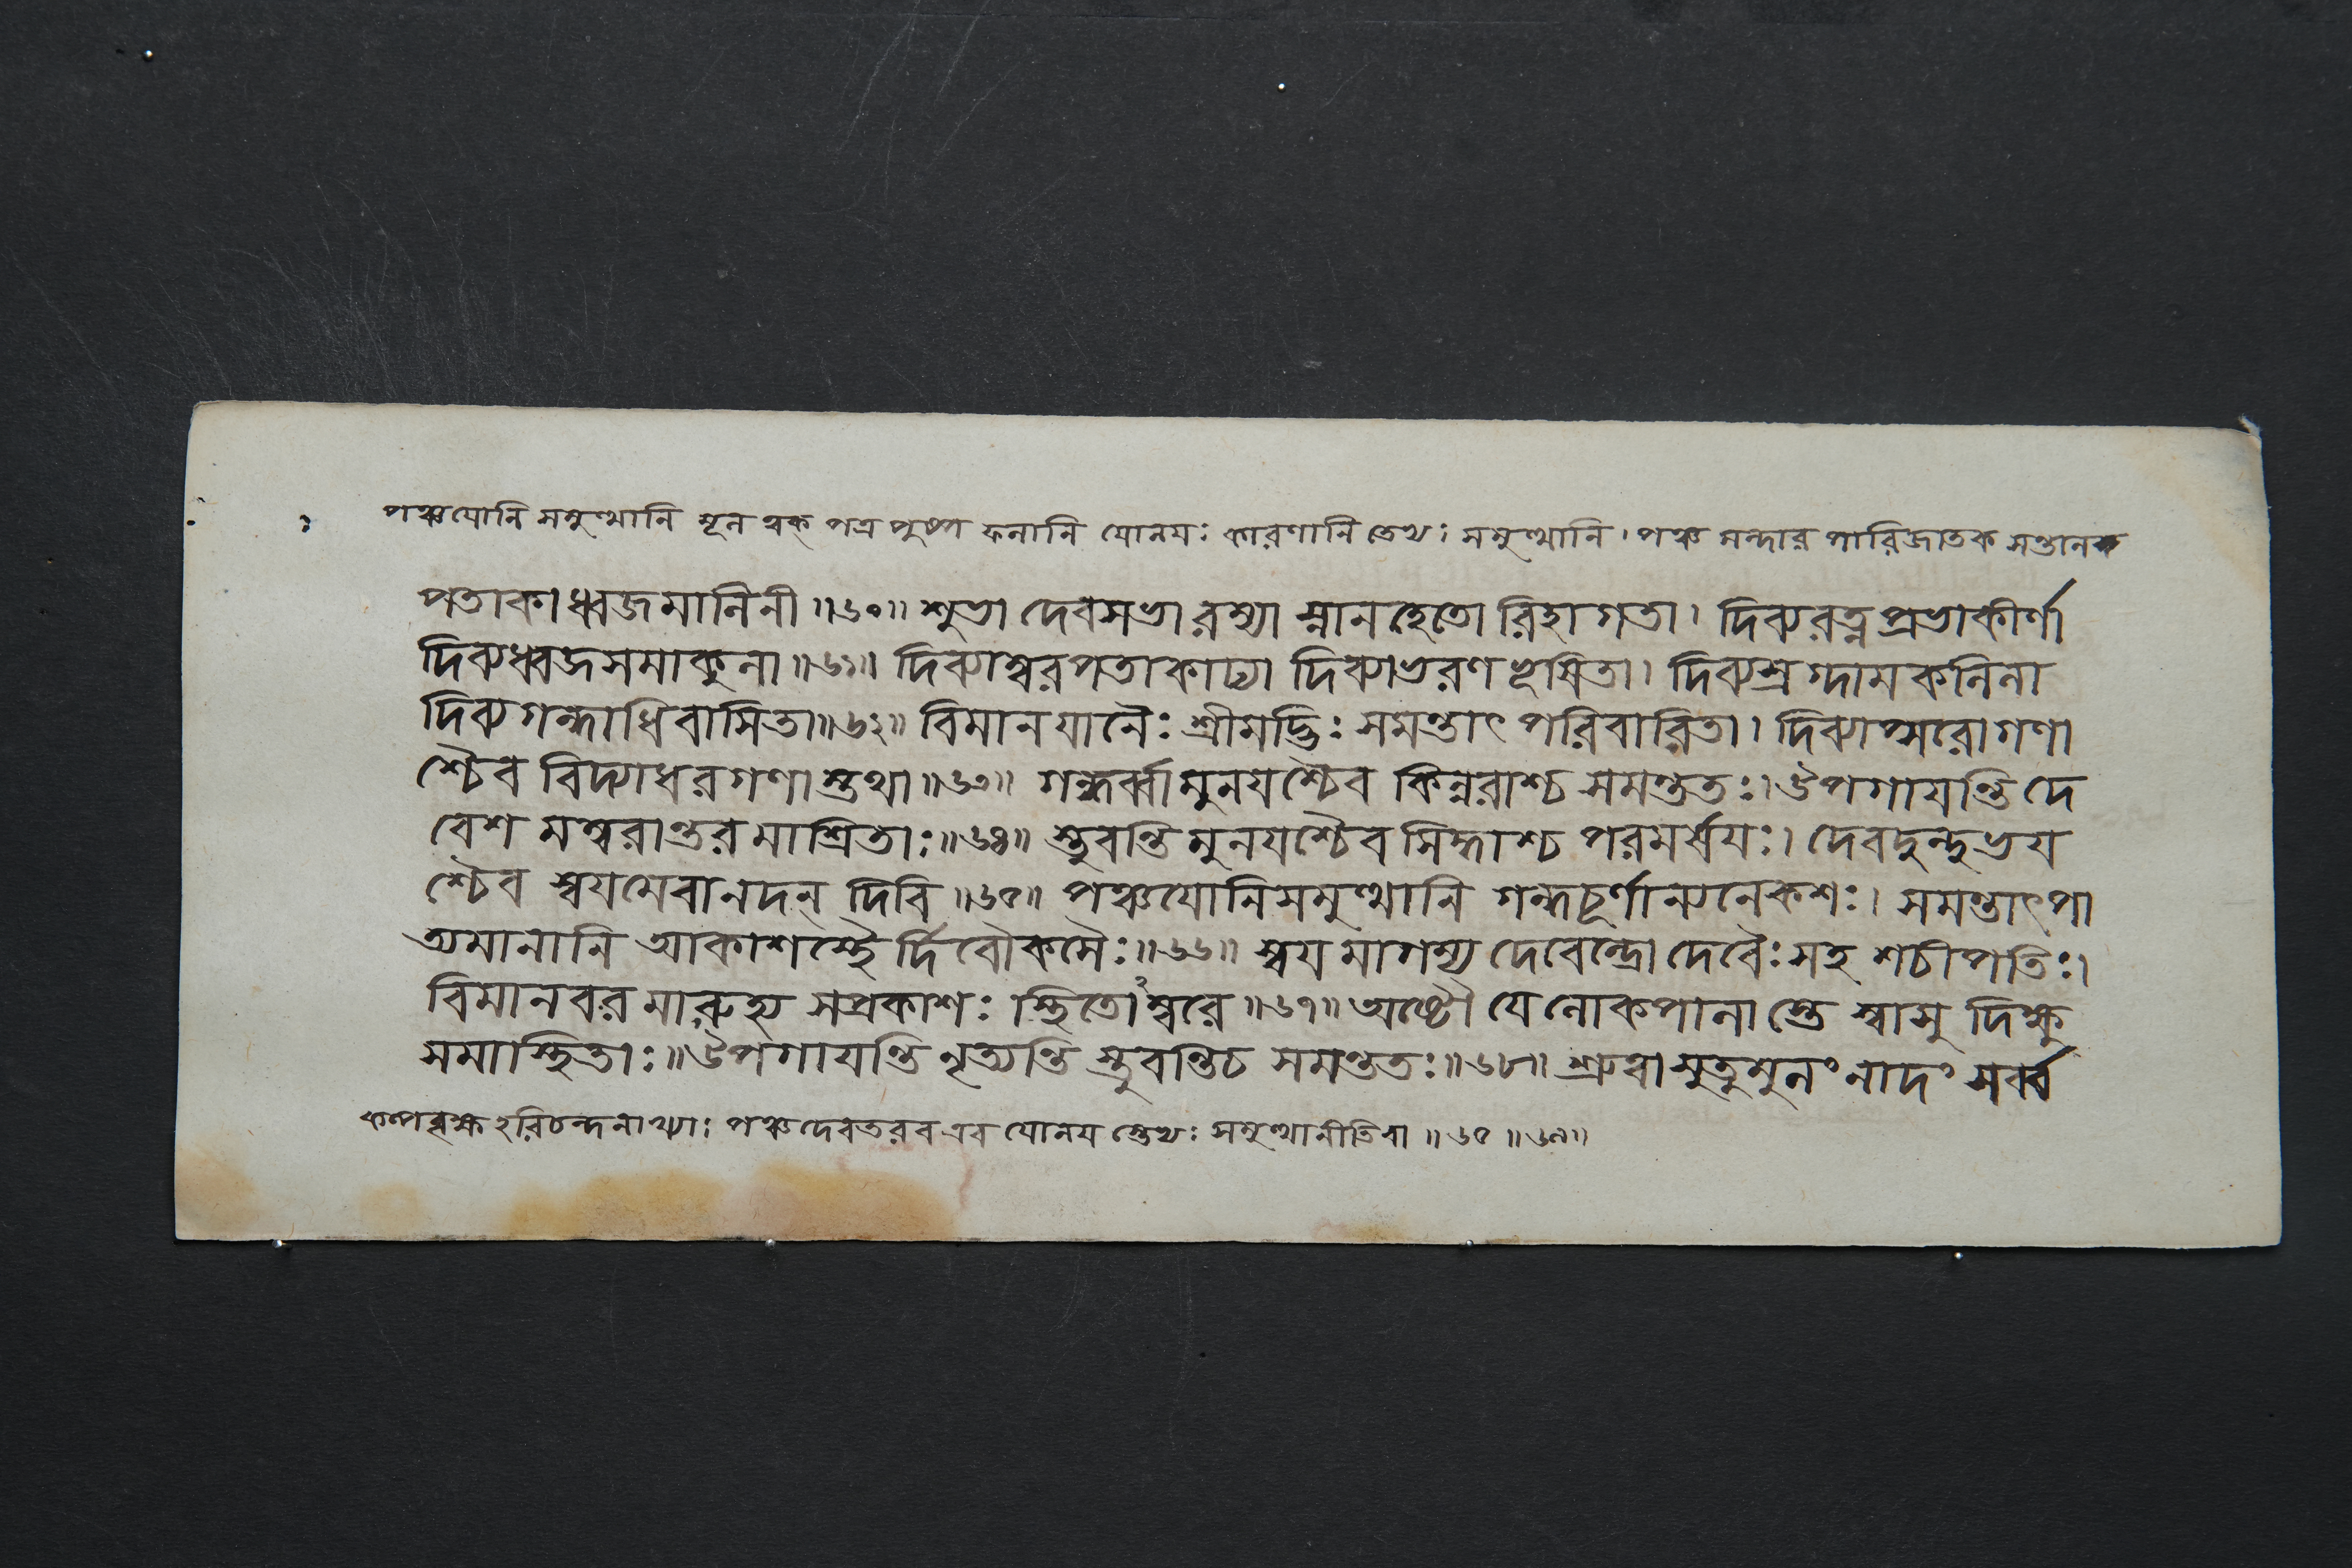 পঞ্চযোনি সমুত্থানি মূল ত্বক্ পত্র পুষ্প ফলানি যোনয়ঃ কারণানি তেত্থঃ সমুত্থানি। পঞ্চ মন্দার পারিজাতক সন্তানক
পতাকাধ্বজমালিনী॥৬০॥ শুভা দেবসভা রম্যা স্নানহেতো রিহাগতা। দিব্যরত্নপ্রভাকীর্ণা
দিব্যধ্বজসমাকুলা॥৬১॥ দিব্যাম্বরপতাকাঢ্যা দিব্যাভরণভূষিতা। দিব্যস্রগ্দামকলিলা
দিব্যগন্ধাধিবাসিতা॥৬২॥ বিমানযানৈঃ শ্রীমদ্ভিঃ সমন্তাৎ পরিবারিতা। দিব্যাপ্সরোগণা
শ্চৈব বিদ্যাধরগণাস্তথা॥৬৩॥ গন্ধর্ব্বা মুনয়শ্চৈব কিন্নরাশ্চ সমন্ততঃ। উপগায়ন্তি দে
বেশ মম্বরান্তরমাশ্রিতাঃ॥৬৪॥ স্তুবন্তি মুনয়শ্চৈব সিদ্ধাশ্চ পরমর্ষয়ঃ। দেবদুন্দুভয়
শ্চৈব স্বয়মেবানদন্ দিবি॥৬৫॥ পঞ্চযোনিসমুত্থানি গন্ধচূর্ণান্যনেকশঃ। সমন্তাৎপা
ত্যমানানি আকাশস্থৈ র্দিবৌকসৈঃ॥৬৬॥ স্বয়মাগম্য দেবেন্দ্রো দেবৈঃ সহ শচীপতিঃ।
বিমানবরমারুহ্য সপ্রকাশঃ স্থিতোঽম্বরে॥৬৭॥ অষ্টৌ যে লোকপালা স্তে স্বাসু দিক্ষু
সমাস্থিতাঃ॥ উপগায়ন্তি নৃত্যন্তি স্তুবন্তিচ সমন্ততঃ॥৬৮॥ শ্রুত্বা সুতুমুলং নাদং সর্ব্ব
কল্পবৃক্ষ হরিচন্দনাখ্যাঃ পঞ্চদেবতরব এব যোনয় স্তেত্থঃ সমুত্থানীতিবা॥৬৫॥৬৯॥